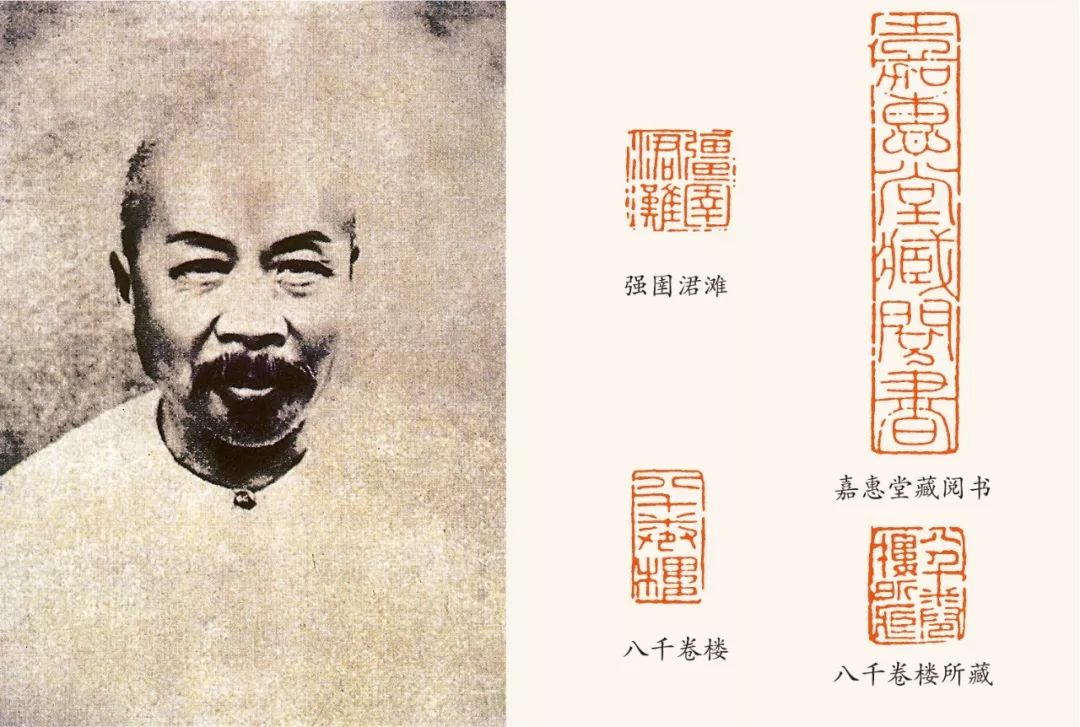 彊圉
涒灘
强圉涒滩
嘉惠堂藏閱書
嘉惠堂藏阅书
八千卷樓
八千卷楼
八千卷
樓所藏
八千卷楼所藏